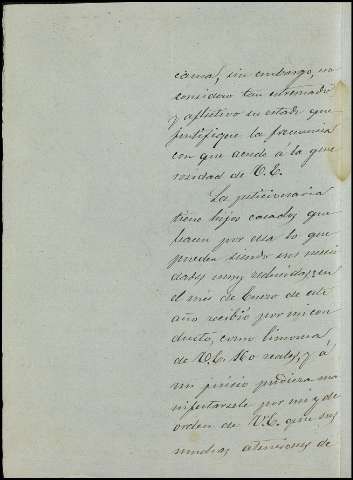 cional, sin embargo, no
considero tan estremado
y aflictivo su estado que
justifique la frecuencia
con que acude á la gene
rosidad de V.E.
La peticionaria
tiene hijos casados que
hacen por ella lo que
pueden siendo sus necesi
dades muy reducidas; en
el mes de Enero de este
año recibió por mi con
ducto, como limosna
de V.E. 160 reales, y á
mi juicio pudiera ma
nifestarsele por mi y de
orden de V.E. que sus
muchas atenciones de